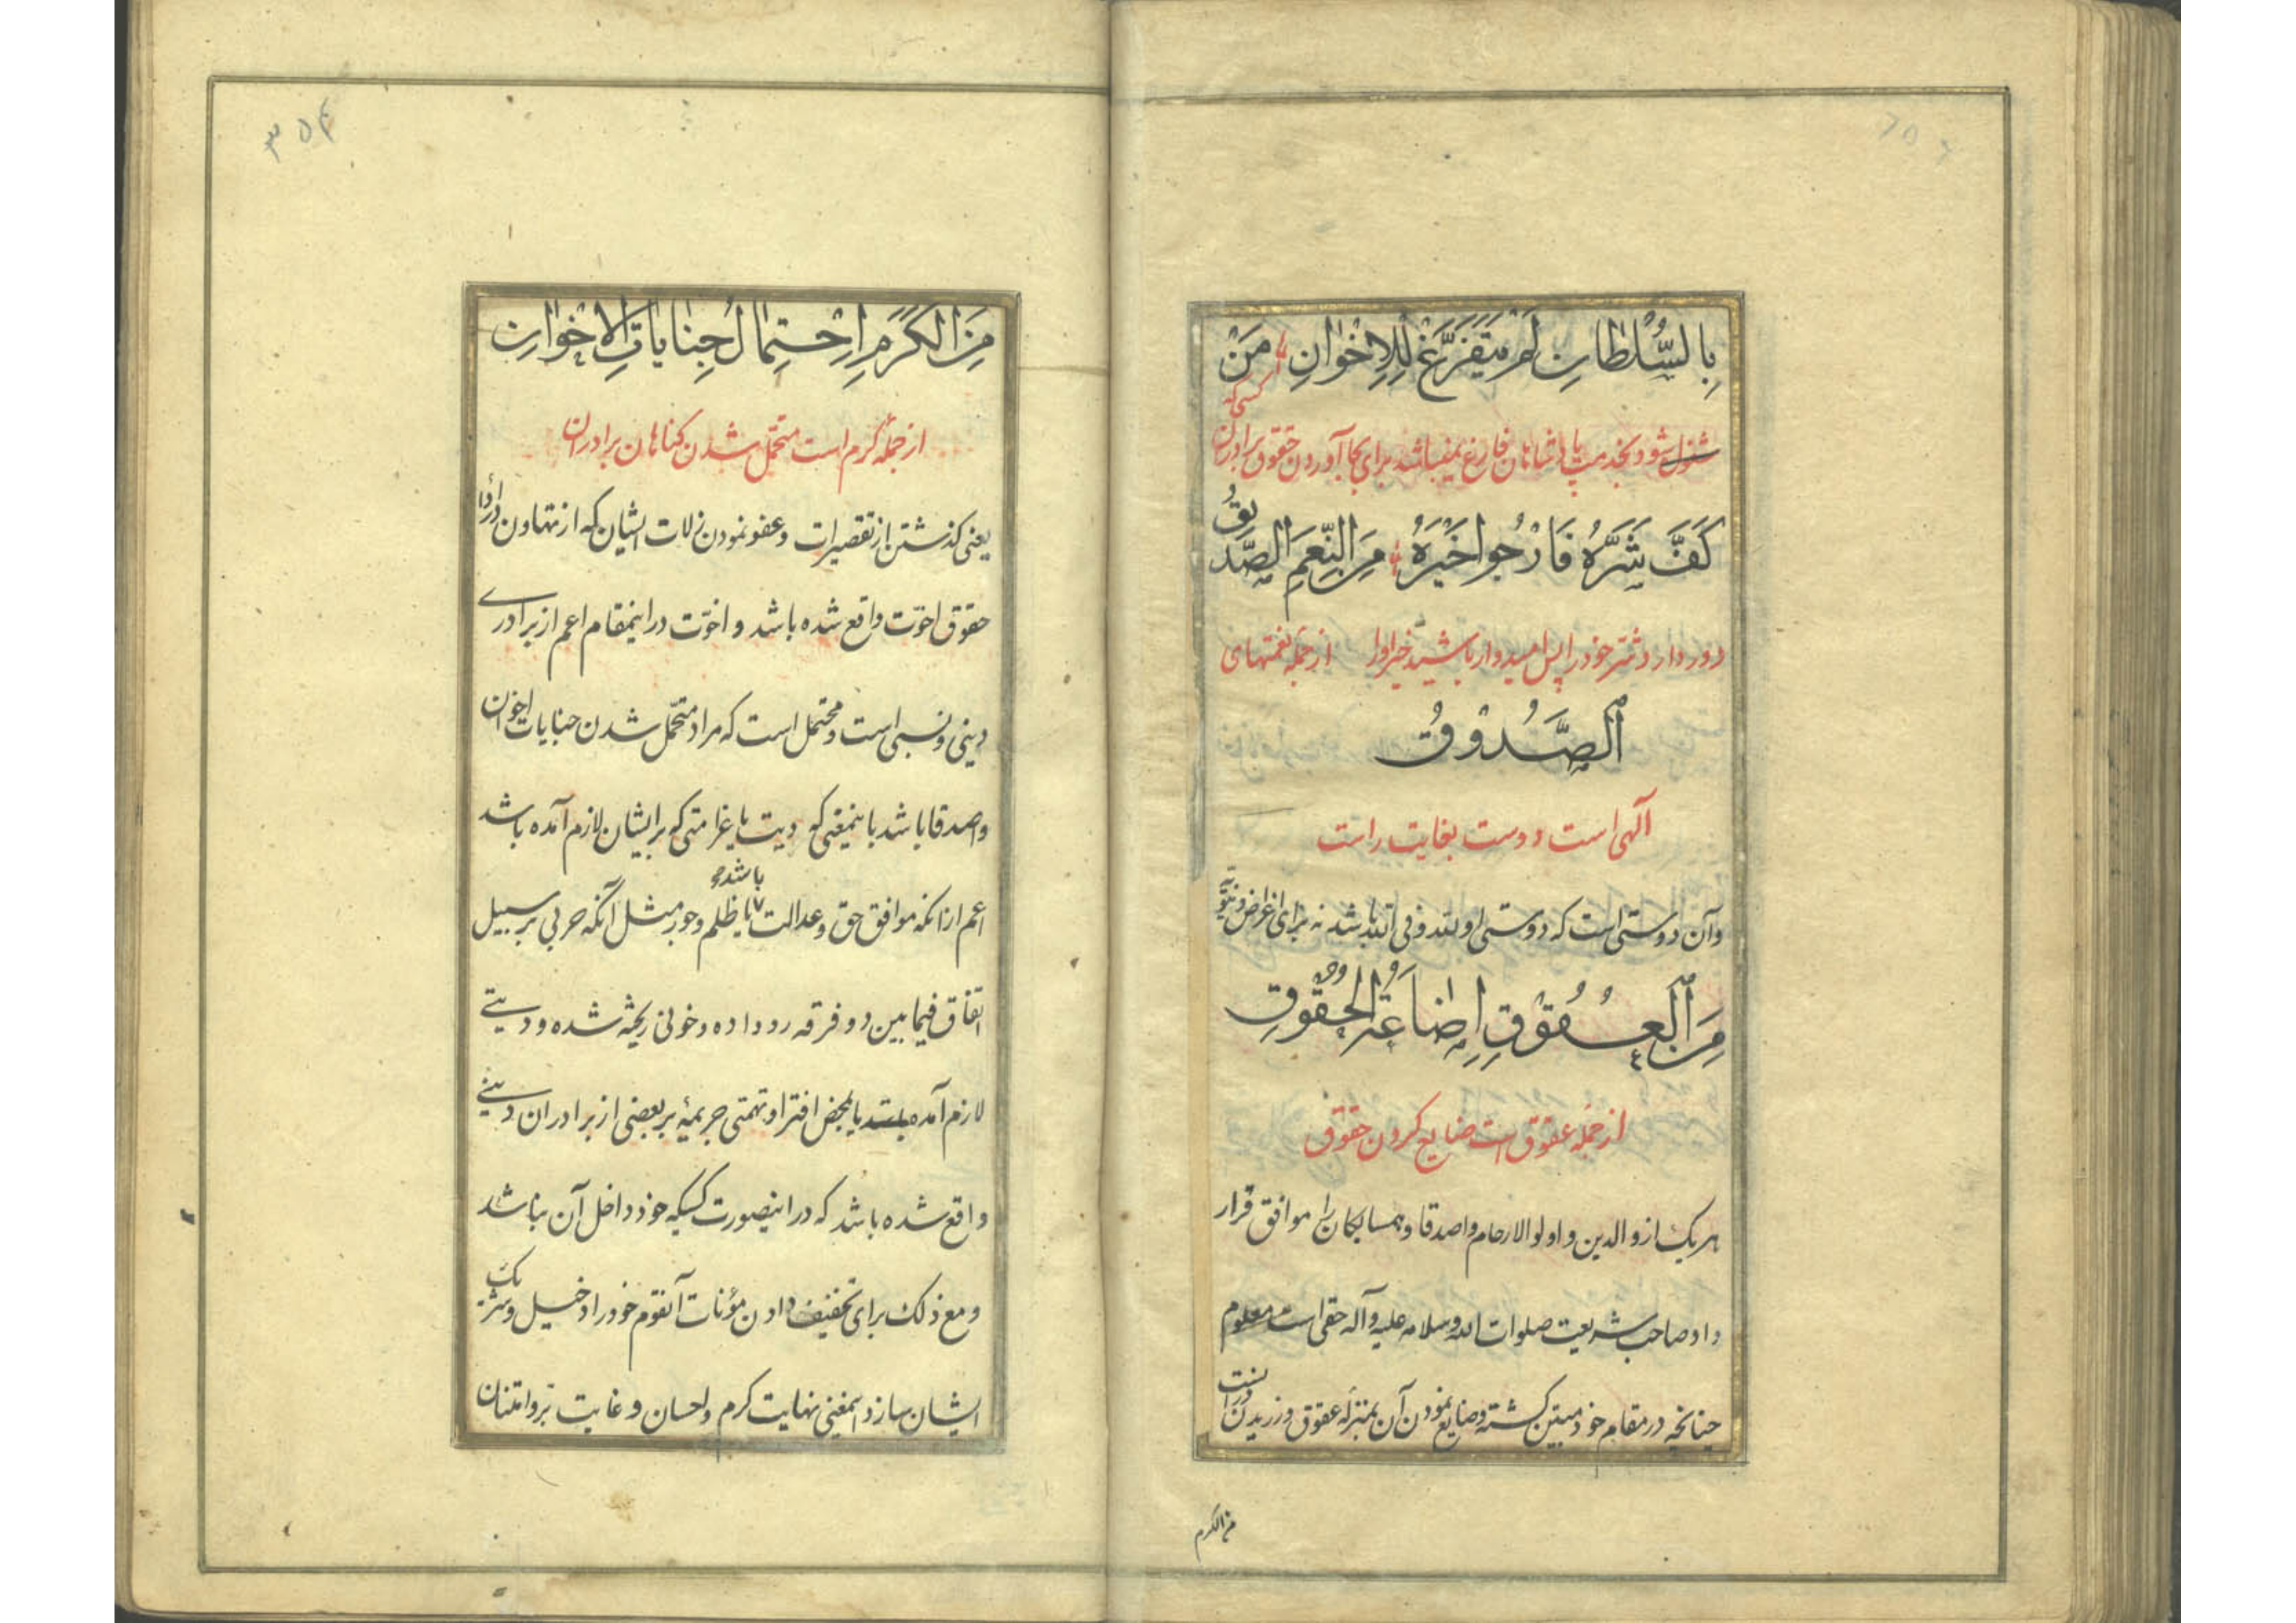 بِالسُّلْطانِ لَمْ يَتَفَرَّغْ لِلاِخْوانِ مَنْ
کسی که
مشغول شود بخدمت پادشاهان فارغ نمیباشد برای بجا آوردن حقوق برادران
كَفَّ شَرَّهُ فَارْجُوا خَيْرَهُ مِنَ النِّعَمِ الصَّديقُ
دور دارد شر خود را پس امیدوار باشید خیر او را از جمله نعمتهای
اَلصَّدُوْقُ
آلهی است دوست بغایت راست
وآن دوستی است که دوستی او لله وفی الله باشد نه برای اغراض دنیویه
مِنَ الْعُقُوْقِ اِضَاعَةُ الْحُقُوقِ
از جمله عقوق است ضایع کردن حقوق
هر یک از والدین و اولوالارحام واصدقا وهمسایکان را موافق قرار
داد صاحب شریعت صلوات الله وسلامه علیه وآله حقی است معلوم
چنانچه در مقام خود مبین کشته وضایع نمودن آن بمنزلهٔ عقوق ورزیدن آنست
من الکرم
۳۵۴
مِنَ الْكَرَمِ اِحْتِمالُ جِناياتِ الْاِخْوانِ
از جمله کرم است متحمل شدن کناهان برادران
یعنی کذشتن از تقصیرات وعفو نمودن زلات ایشان که از تهاون در ادا
حقوق اخوّت واقع شده باشد و اخوّت در اینمقام اعم از برادری
دینی ونسبی است ومحتمل است که مراد متحمّل شدن جنایات اخوان
واصدقا باشد باینمعنی که دیت یا غرامتی که بر ایشان لازم آمده باشد
باشد
اعم از انکه موافق حق وعدالت یا ظلم وجور مثل آنکه حربی بر سبیل
اتفاق فیما بین دو فرقه رو داده وخونی ریخته شده ودیتی
لازم آمده باشد یا بمحض افترا وتهمتی جریمهٔ بر بعضی از برادران دینی
واقع شده باشد که در اینصورت کسیکه خود داخل آن نباشد
ومع ذلک برای تخفیف دادن مؤنات آنقوم خود را دخیل وشریک
ایشان سازد اینمعنی نهایت کرم واحسان وغایت برّ وامتنان